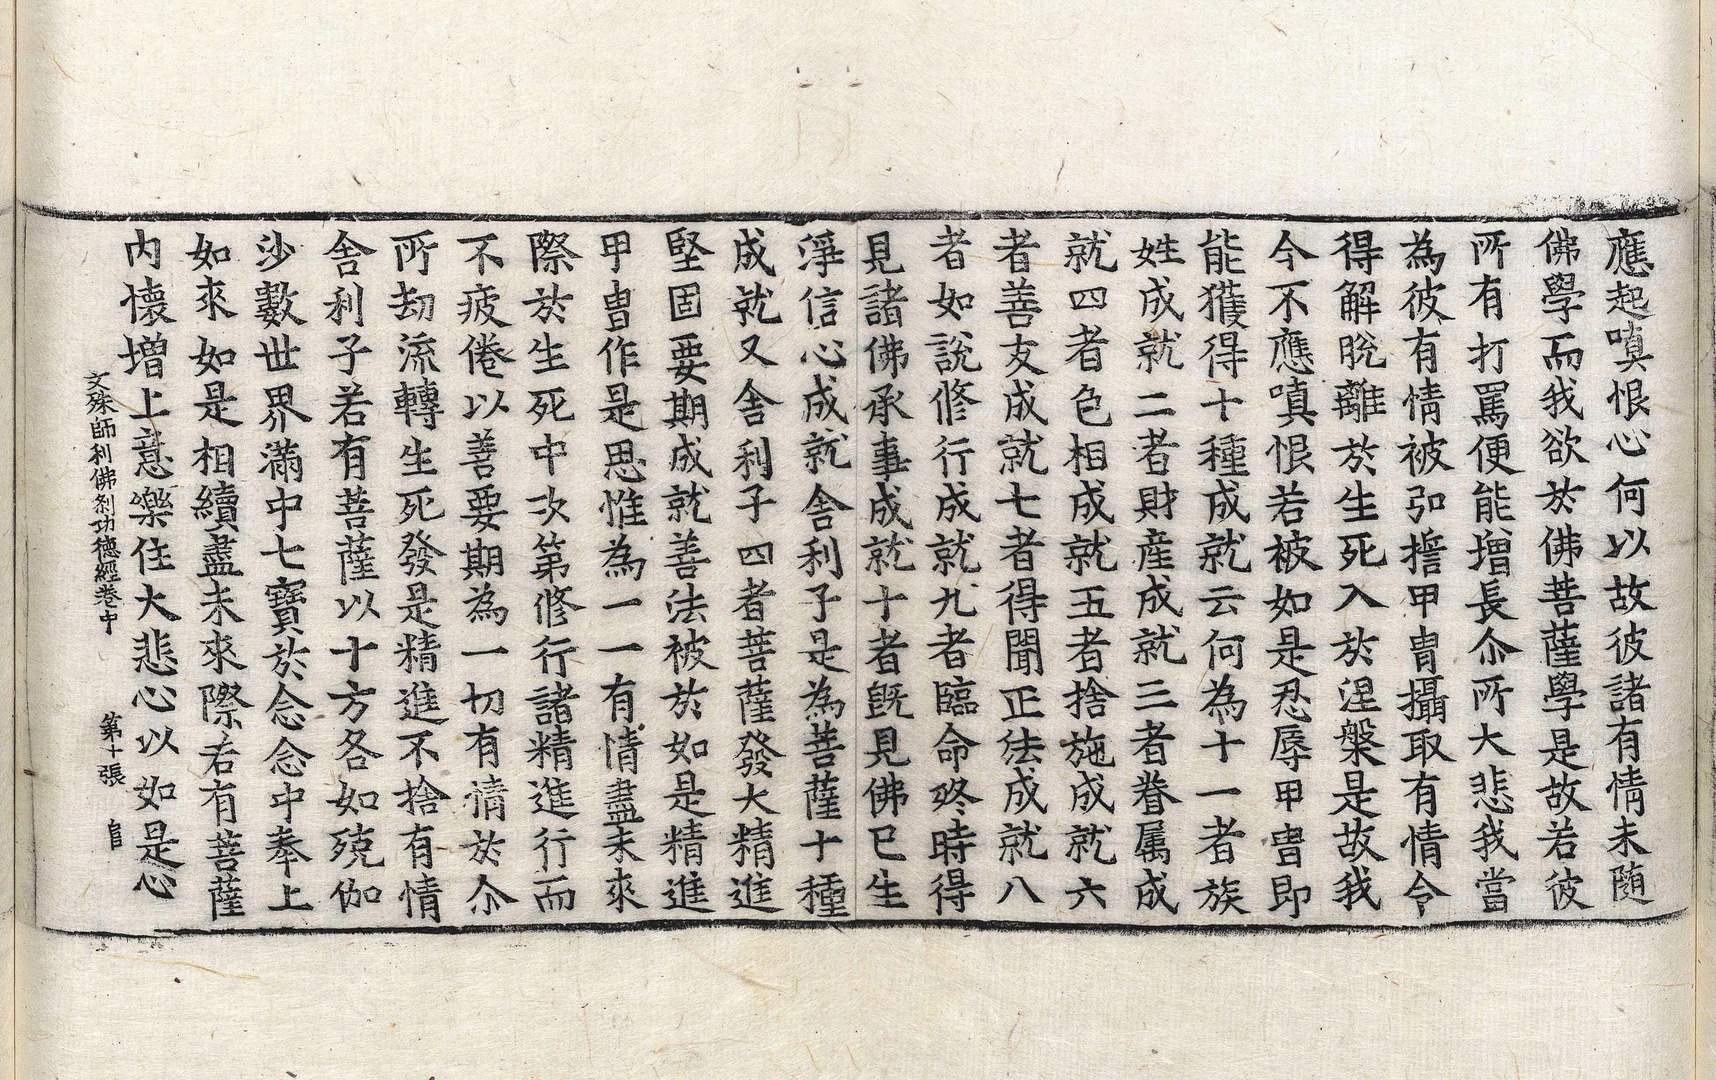 應起嗔恨心何以故彼諸有情未随
佛學而我欲於佛菩薩學是故若彼
所有打罵便能增長尒所大悲我當
為彼有情被弘擔甲胄攝取有情令
得解脫離於生死入於涅槃是故我
今不應嗔恨若被如是忍辱甲胄即
能獲得十種成就云何為十一者族
姓成就二者財産成就三者眷属成
就四者色相成就五者捨施成就六
者善友成就七者得聞正法成就八
者如說修行成就九者臨命終時得
見諸佛承事成就十者旣見佛已生
淨信心成就舍利子是為菩薩十種
成就又舍利子四者菩薩發大精進
堅固要期成就善法被於如是精進
甲胄作是思惟為一一有情盡未來
際於生死中次第修行諸精進行而
不疲倦以善要期為一切有情於尒
所劫流轉生死發是精進不捨有情
舍利子若有菩薩以十方各如殑伽
沙數世界滿中七寶於念念中奉上
如來如是相續盡未來際若有菩薩
内懷增上意樂住大悲心以如是心
文殊師利佛刹功德經卷中 第十張